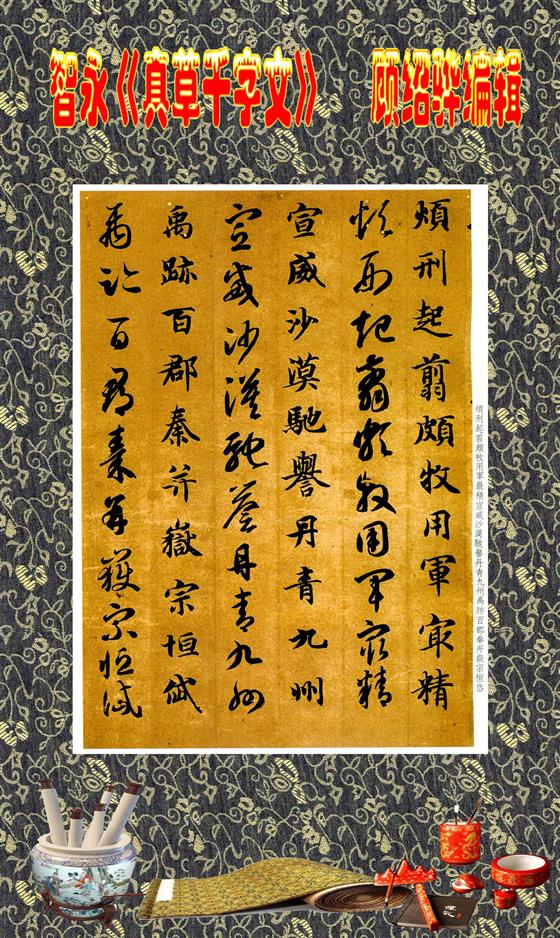 智永《真草千字文》 顾绍骅编辑
煩刑起翦頗牧用軍㝡精
煩刑起翦頗牧用軍㝡精
宣威沙漠馳譽丹青九州
宣威沙漠馳譽丹青九州
禹跡百郡秦并嶽宗恒岱
禹跡百郡秦并嶽宗恒岱
煩刑起翦頗牧用軍最精宣威沙漠馳譽丹青九州禹跡百郡秦并嶽宗恒岱